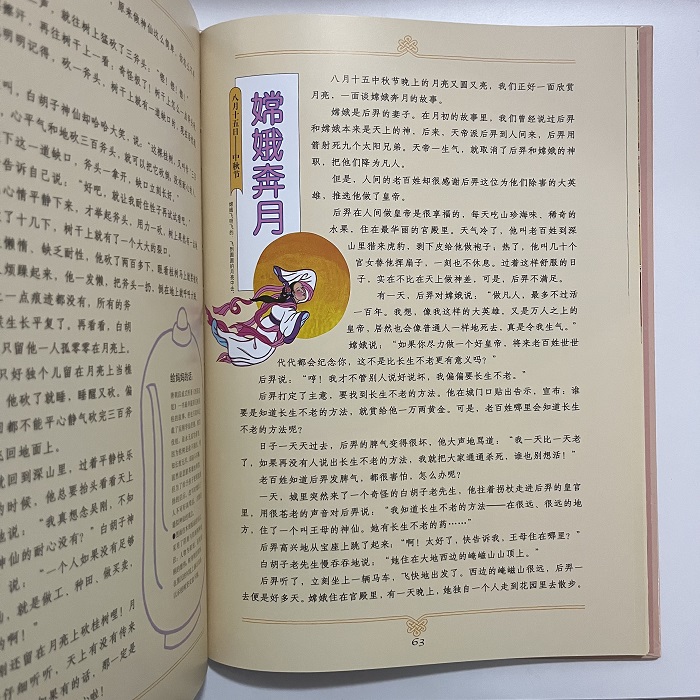 声，就往树上猛砍了三斧头：
擦汗，再往树干上一看：奇怪极了！
明明记得，砍一斧头，树干上就有一道缺口
叫，白胡子神仙却哈哈大笑，说：
，心平气和地砍三百斧头，就可以把它砍倒
下这一道缺口，斧头一拿开，缺口立刻长拢
告诉自己说：“好吧，就让我耐住性子再试试看吧
心情平静下来，才举起斧头，用力一砍
了十几下，树干上就有了一个大大的裂口。
懒惰、缺乏耐性，他砍了两百多下，眼看桂树马上就要
烦躁起来，他一发懒，把斧头一扔，倒在地上就呼呼
一点痕迹都没有，所有的斧
皮生长平复了。再看看，白胡
只留他一人孤零零在月亮上。
只好独个儿留在月亮上当樵
他砍了就睡，睡醒又砍。偏
回都不能平心静气砍完三百斧
回地面上。
就回到深山里，过着平静快乐
的时候，他总要抬头看看天上
地说：“我真想念吴刚，不知
神仙的耐心没有？”白胡子神
说：“一个人如果没有足够
，就是做工、种田、做买卖，
的啊！”
刚还留在月亮上砍桂树哩！月
仔细听听，天上有没有传来
如果有的话，那一定是
啦！
给妈妈的话：
八月十五日——中秋节
嫦娥奔月
嫦娥飞呀飞的，飞到圆圆的月亮中去。
八月十五中秋节晚上的月亮又圆又亮，我们正好一面欣赏
月亮，一面谈嫦娥奔月的故事。
嫦娥是后羿的妻子。在月初的故事里，我们曾经说过后羿
和嫦娥本来是天上的神，后来，天帝派后羿到人间来，后羿用
箭射死九个大阳兄弟。天帝一生气，就取消了后羿和嫦娥的神
职，把他们降为凡人。
但是，人间的老百姓却很感谢后羿这位为他们除害的大英
雄，推选他做了皇帝。
后羿在人间做皇帝是很享福的，每天吃山珍海味、稀奇的
水果，住在最华丽的宫殿里。天气冷了，他叫老百姓到深
山里猎来虎豹，剥下皮给他做袍子；热了，他叫几十个
宫女替他挥扇子，一刻也不休息。过着这样舒服的日
子，实在不比在天上做神差，可是，后羿不满足。
有一天，后羿对嫦娥说：“做凡人，最多不过活
一百年。我想，像我这样的大英雄，又是万人之上的
皇帝，居然也会像普通人一样地死去，真是令我生气。”
嫦娥说：“如果你尽力做一个好皇帝，将来老百姓世世
代代都会纪念你，这不是比长生不老更有意义吗？”
后羿说：“哼！我才不管别人说好说坏，我偏偏要长生不老。”
后羿打定了主意，要找到长生不老的方法。他在城门口贴出告示，宣布：谁
要是知道长生不老的方法，就赏给他一万两黄金。可是，老百姓哪里会知道长生
不老的方法呢？
日子一天天过去，后羿的脾气变得很坏，他大声地骂道：“我一天比一天老
了，如果再没有人说出长生不老的方法，我就把大家通通杀死，谁也别想活！”
老百姓知道后羿发脾气，都很害怕，怎么办呢？
一天，城里突然来了一个奇怪的白胡子老先生，他拄着拐杖走进后羿的皇宫
里，用很苍老的声音对后羿说：“我知道长生不老的方法——在很远、很远的地
方，住了一个叫王母的神仙。她有长生不老的药……”
后羿高兴地从宝座上跳了起来：“啊！太好了，快告诉我，王母住在哪里？”
白胡子老先生慢吞吞地说：“她住在大地西边的崦嵫山山顶上。”
后羿听了，立刻坐上一辆马车，飞快地出发了。西边的崦嵫山很远，后羿一
去便是好多天。嫦娥住在宫殿里，有一天晚上，她独自一个人走到花园里去散步。
63